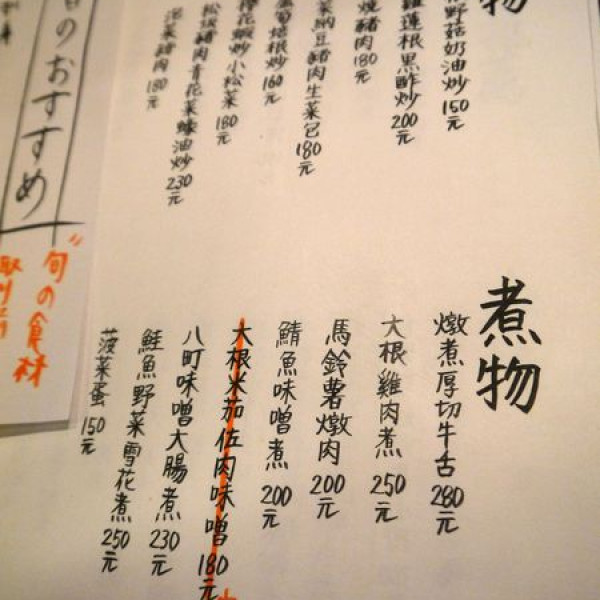 物
野菇奶油炒 150元
蓮根黑酢炒 200元
燒豬肉 180元
菜納豆豬肉生菜包 180元
培根炒 160元
櫻花蝦炒小松菜 180元
松阪豬肉青花菜蠔油炒 230元
泡菜豬肉 180元
のおすすめ
旬の食材
煮物
燉煮厚切牛舌 280元
大根雞肉煮 250元
馬鈴薯燉肉 200元
鯖魚味噌煮 200元
大根米茄佐肉味噌 180元
八町味噌大腸煮 230元
鮭魚野菜雪花煮 250元
菠菜蛋 150元